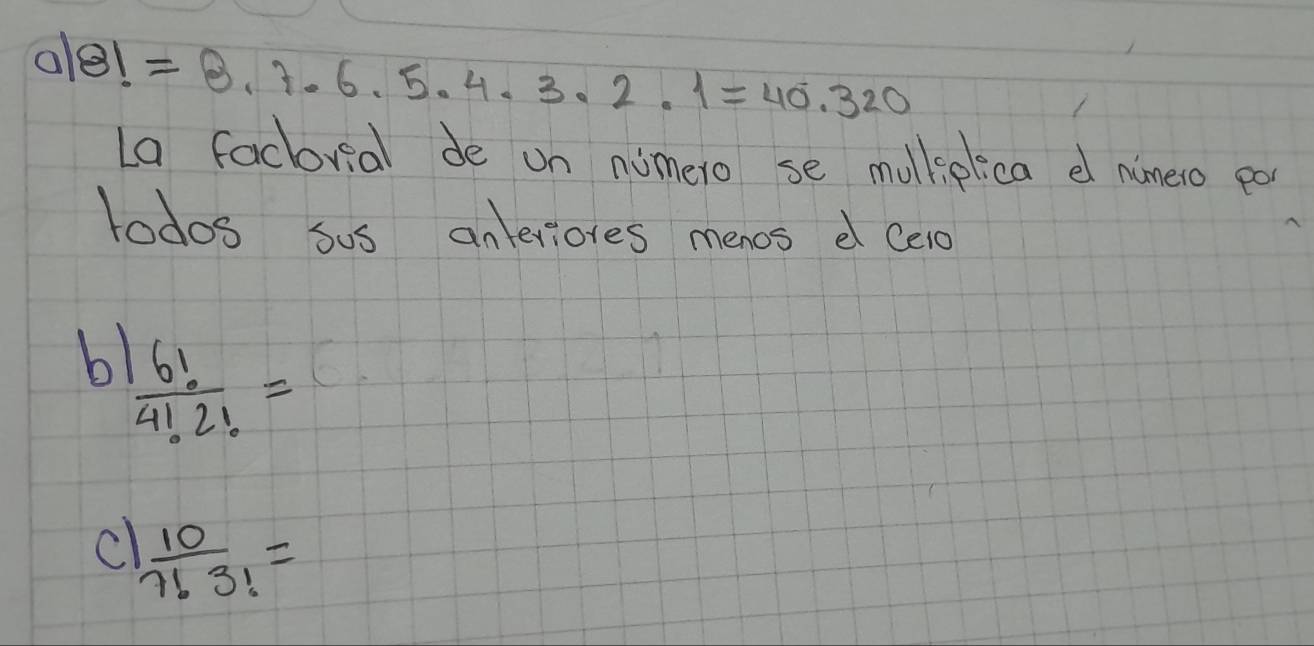 a) 8! = 8. 7. 6. 5. 4. 3. 2. 1 = 40.320
La factorial de un número se multiplica el número por
todos sus anteriores menos el cero
b) 6! / 4! 2! =
c) 10 / 7! 3! =